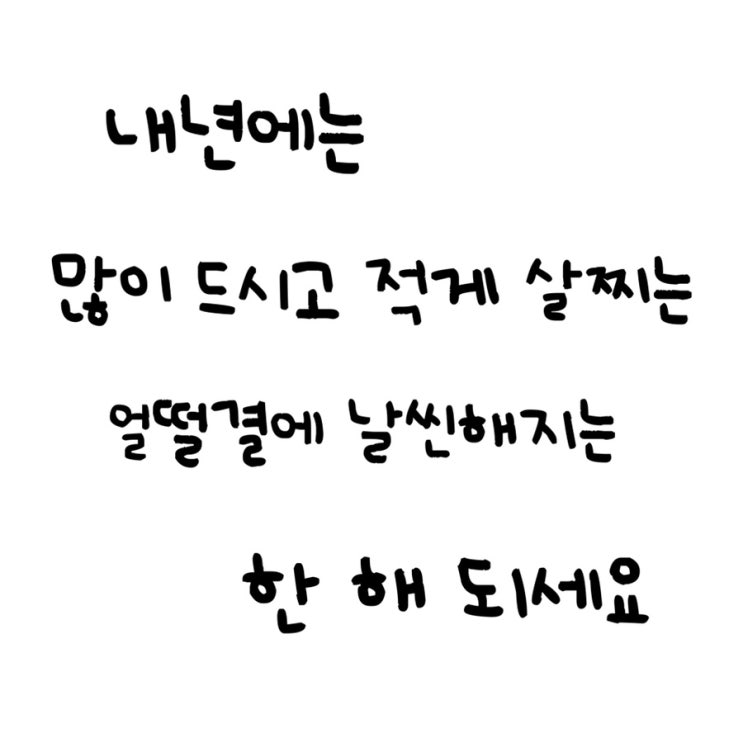 내년에는
많이 드시고 적게 살찌는
얼떨결에 날씬해지는
한 해 되세요